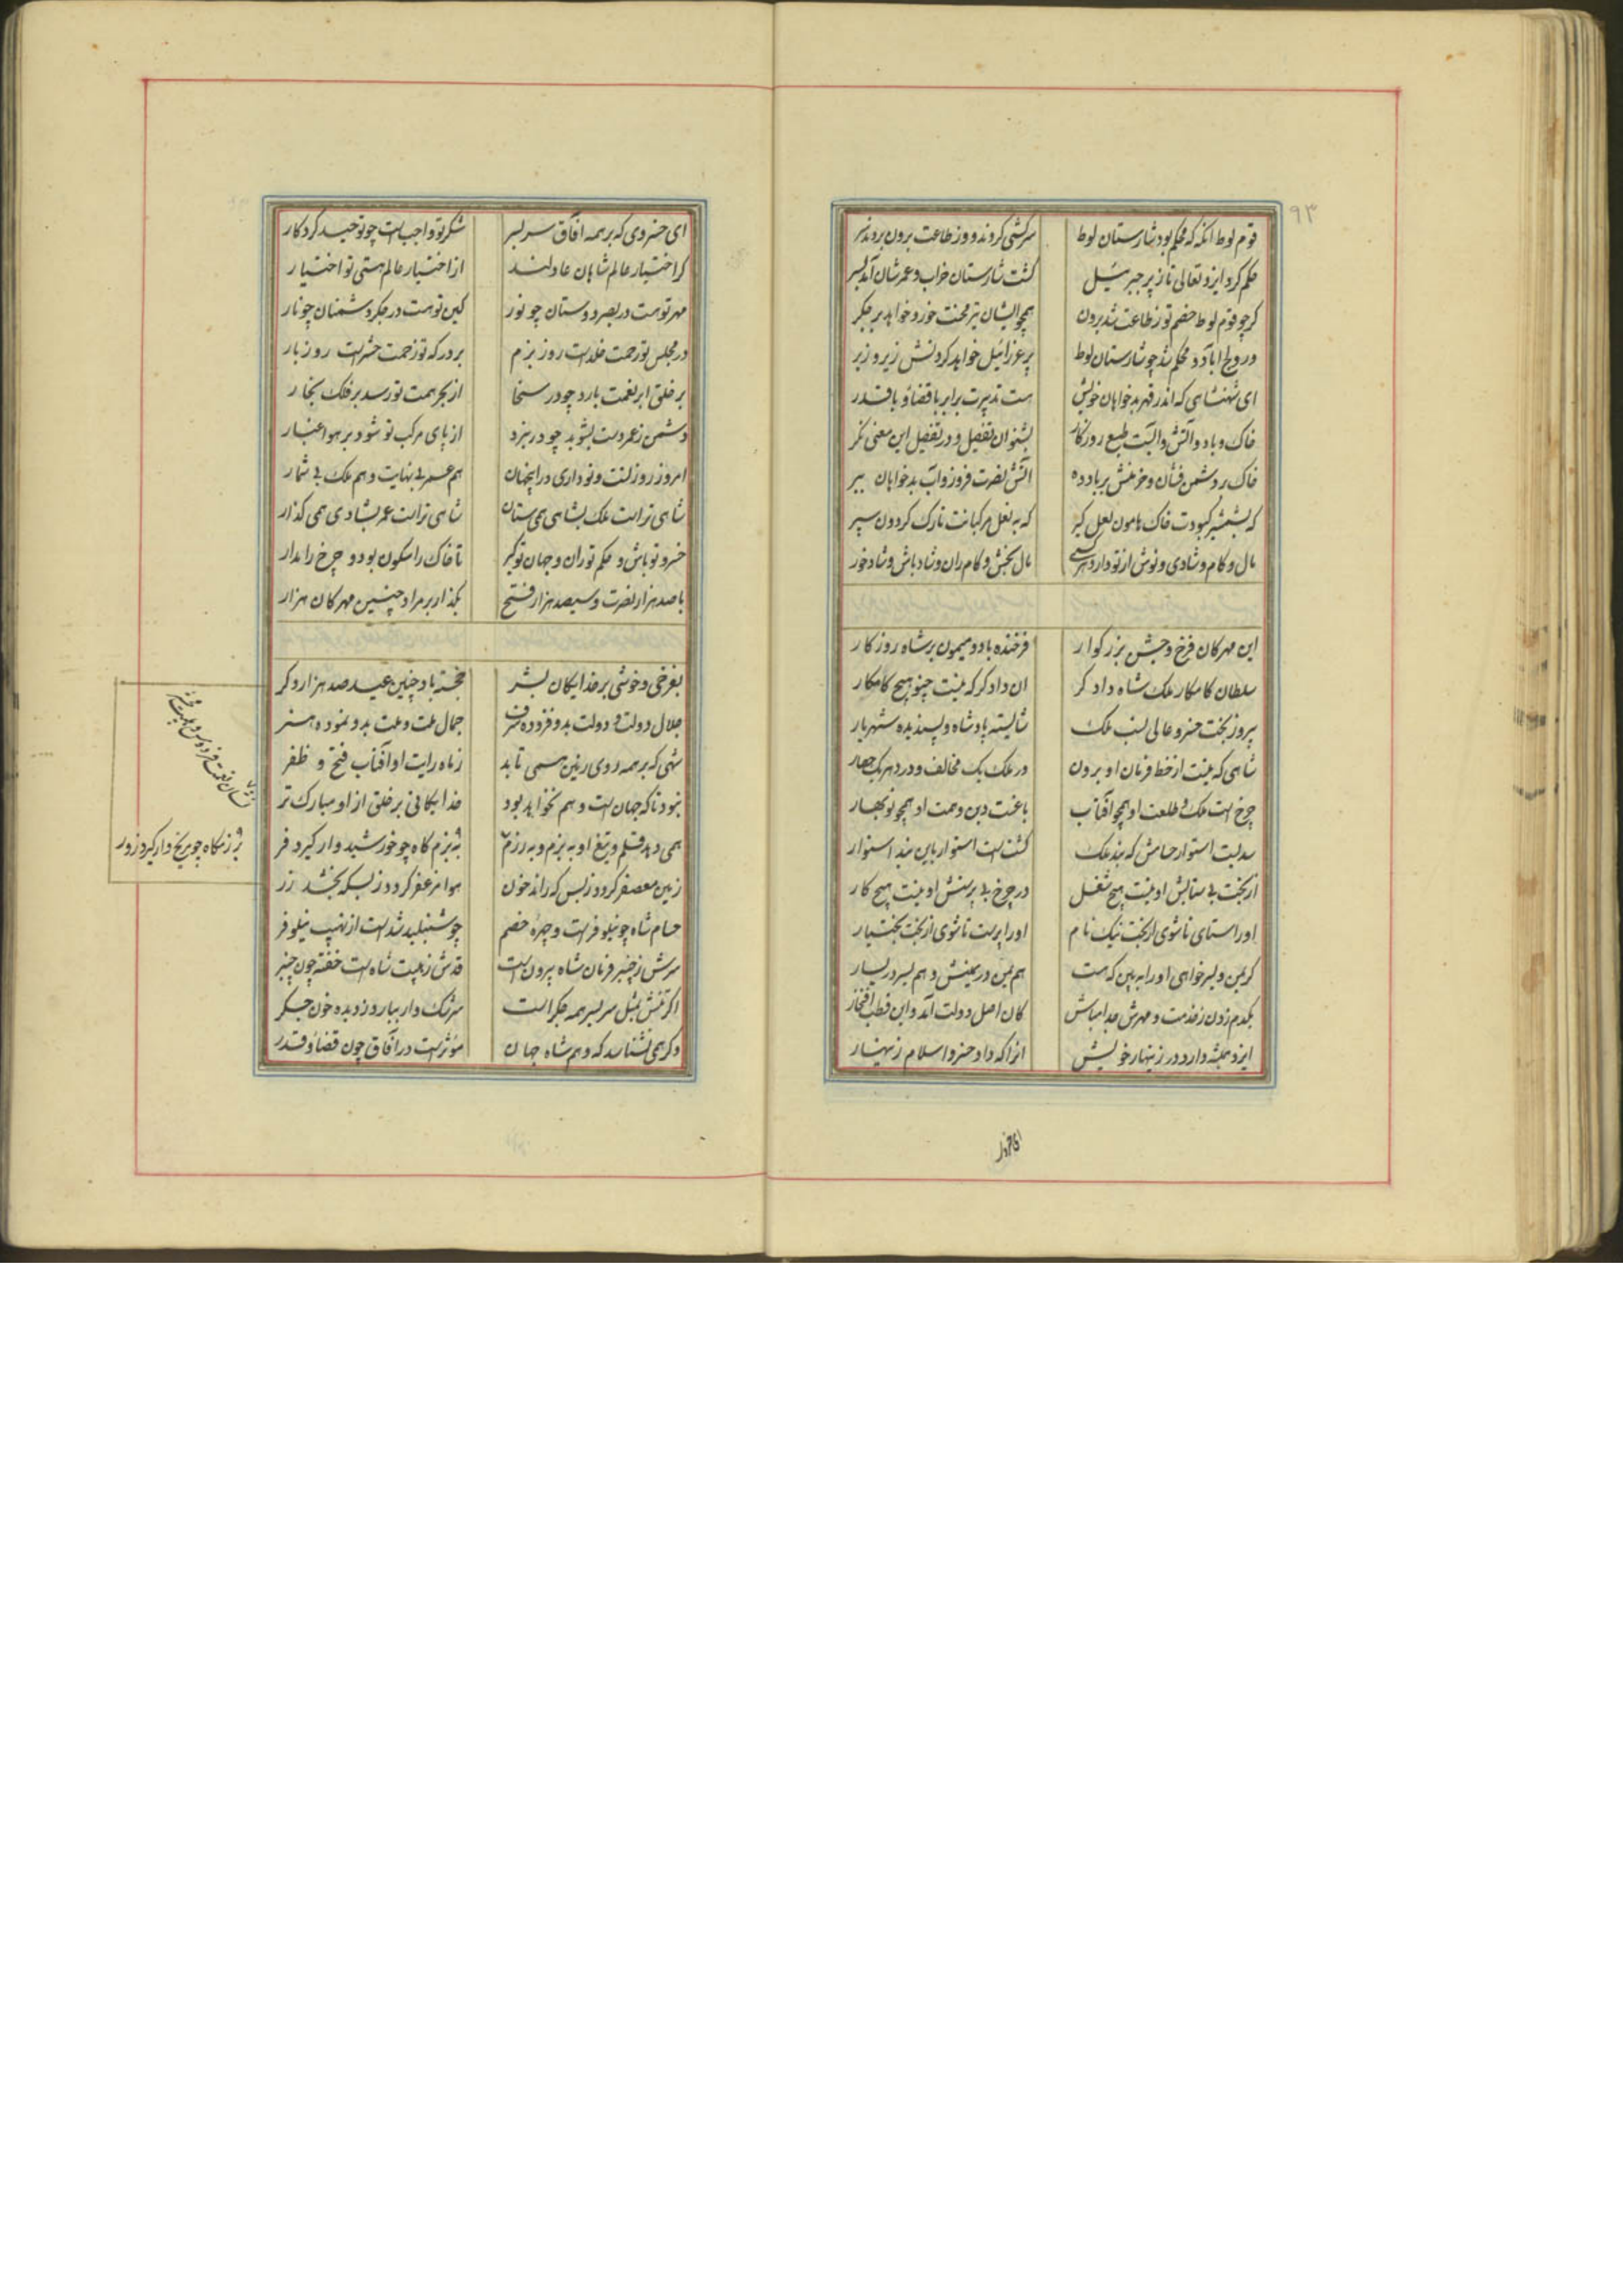 ۹۳
قوم لوط انکه که محکم بود شارستان لوط سرکشی کردند و وز طاعت برون بردند سر
حکم کرد ایزد تعالی تا ز پر جبرئیل کشت شارستان خراب و عمرشان آمد بسر
کر چو قوم لوط خصم تو ز طاعت شد برون همچو ایشان تیر محنت خورد خواهد بر جکر
ور ولج اباد او محکم شد چو شارستان لوط پر عزرائیل خواهد کردنش زیر و زبر
ای شهنشاهی که اندر قهر بدخواهان خویش هست تدبیرت برابر با قضا و با قدر
خاک و باد و آتش و آبست طبع روزکار بشنو ان تفصیل و در تفصیل این معنی نکر
خاک بر دشمن فشان و خرمنش بر باد ده آتش نصرت فروز و آب بدخواهان ببر
که بشمشیر کبودت خاک هامون لعل کیر که به نعل مرکبانت تارک کردون سپر
مال و کام و شادی و نوش از تو دارد هر کسی مال بخش و کام ران و شاد باش و شاد خور
این مهرکان فرخ و جشن بزرکوار فرخنده باد و میمون بر شاه روزکار
سلطان کامکار ملک شاه دادکر ان دادکر که نیست چنو هیچ کامکار
پیروز بخت خسرو عالی نسب ملک شایسته پادشاه و پسندیده شهریار
شاهی که نیست از خط فرمان او برون در ملک یک مخالف و در دهر یک حصار
چرخ است ملک و طلعت او همچو آفتاب باغست دین و همت او همچو نوبهار
سدیست استوار حسامش که بند ملک کشت است استوار باین بند استوار
از بخت بی ستایش او نیست هیچ شغل در چرخ بی پرستش او نیست هیچ کار
او را ستای تا شوی از بخت نیک نام او را پرست تا شوی از بخت بختیار
کر یمن و یسر خواهی او را ببین که هست هم یمن در یمینش و هم یسر در یسار
یکدم زدن ز خدمت و مهرش جدا مباش کان اصل دولت آمد و این قطب افتخار
ایزد همیشه دارد در زینهار خویش انرا که داد خسرو اسلام زینهار
ای خسروی که بر همه افاق سر بسر شکر تو واجب است چو توحید کردکار
کر اختیار عالم شاهان عادلند از اختیار عالم هستی تو اختیار
مهر تو هست در بصر دوستان چو نور کین تو هست در جکر دشمنان چو نار
در مجلس تو رحمت خلد است روز بزم بر درکه تو زحمت حشر است روز بار
بر خلق ابر نعمت بارد چو در سخا از بحر همت تو رسد بر فلک بخار
دشمن ز عمر دست بشوید چو در نبرد از پای مرکب تو شود بر هوا غبار
امروز روز تست و تو داری در اینجهان هم عمر بی نهایت و هم ملک بی شمار
شاهی تراست ملک بشاهی همی ستان شاهی تراست عمر بشادی همی کذار
خسرو تو باش و حکم تو ران و جهان تو کیر تا خاک را سکون بود و چرخ را مدار
با صد هزار نصرت و سیصد هزار فتح بکذار بر مراد چنین مهرکان هزار
بفرخی و خوشی بر خدایکان بشر خجسته باد چنین عید صد هزار دکر
جلال دولت و دولت بدو فزوده شرف جمال ملت و ملت بدو نموده هنر
شهی که بر همه روی زمین همی تابد ز ماه رایت او آفتاب فتح و ظفر
نبود تا که جهان است و هم نخواهد بود خدایکانی بر خلق از او مبارک تر
همی دهد قلم و تیغ او به بزم و به رزم
به بزم کاه چو خورشید وار کیرد فر
زمین معصفر کردد ز بس که راند خون هوا مزعفر کردد ز بسکه بخشد زر
حسام شاه چو نیلوفر است و چهره خصم چو شنبلید شد است از نهیب نیلوفر
سرش ز چنبر فرمان شاه بیرون است قدش ز هیبت شاه است خفته چون چنبر
اکر تنش بمثل سر بسر همه جکر است سرشک وار ببارد ز دیده خون جکر
وکر همی نشناسد که وهم شاه جهان مؤثر است در آفاق چون قضا و قدر
نشان نعمت فردوس و هیبت
برزمکاه چو مریخ وار کیرد زور